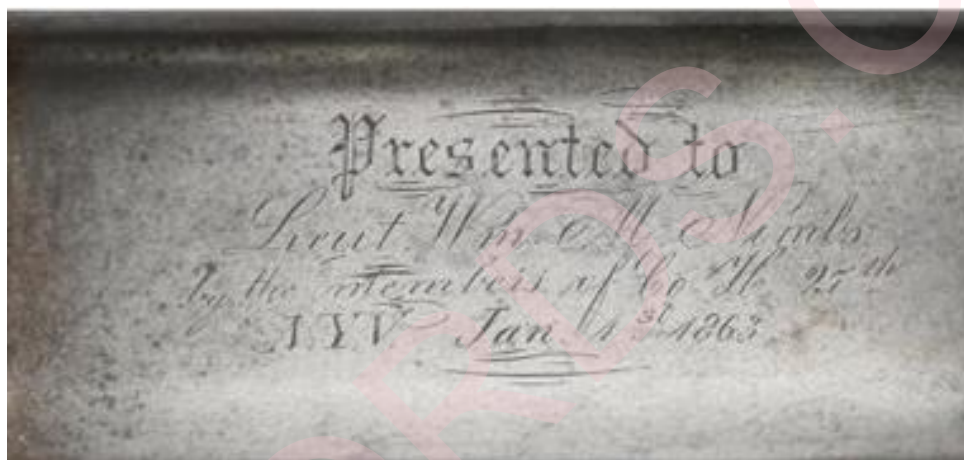 Presented to
Lieut Wm M
by the members of Co H 25th
N Y V Jan 1st 1863